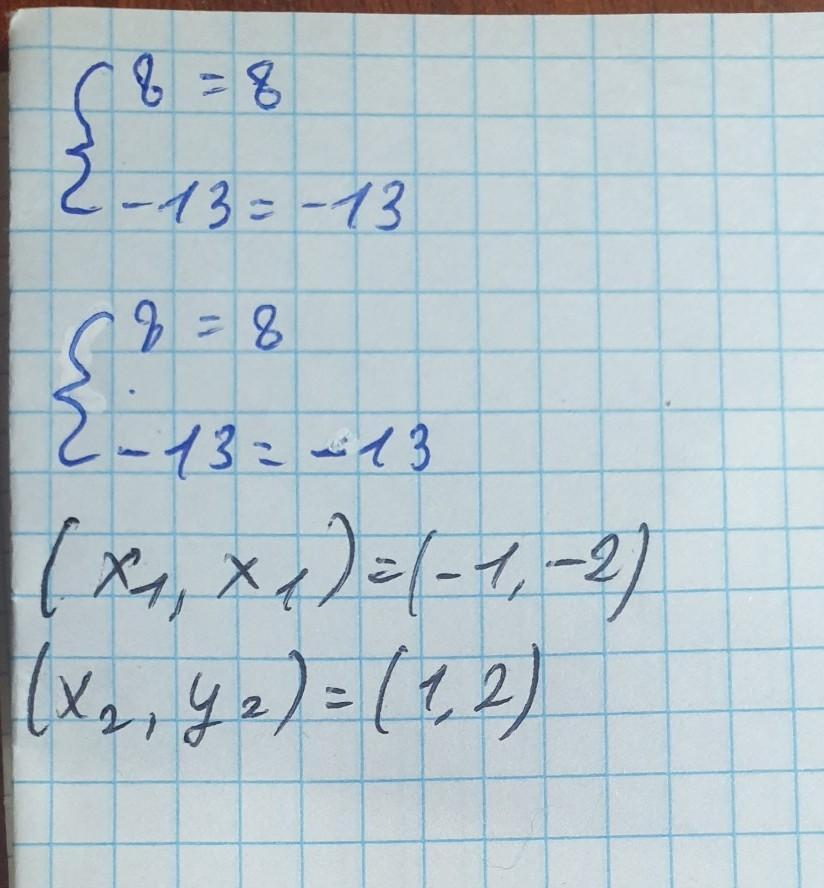 { 8 = 8
-13 = -13
{ 8 = 8
-13 = -13
(x₁, x₁) = (-1, -2)
(x₂, y₂) = (1, 2)